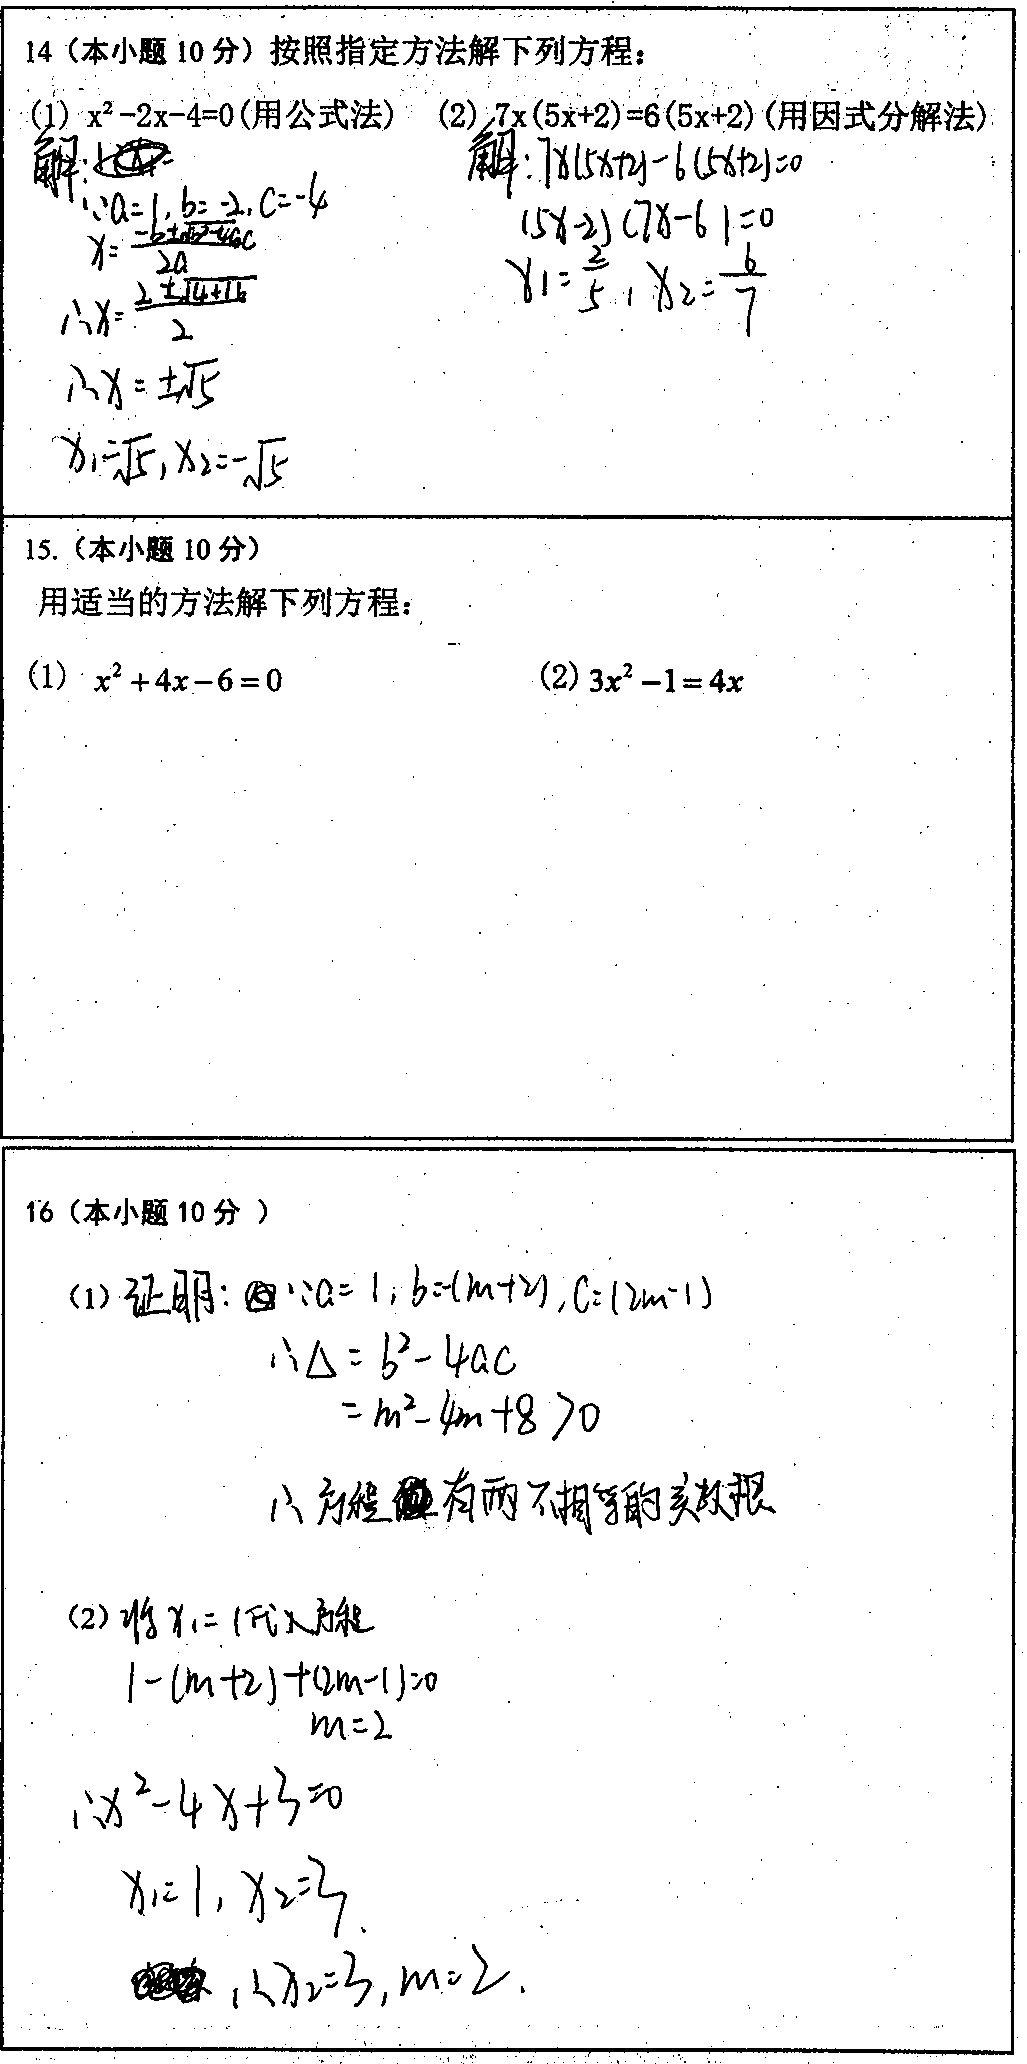 14（本小题 10 分）按照指定方法解下列方程：
(1) x²-2x-4=0(用公式法) (2) 7x(5x+2)=6(5x+2)(用因式分解法)
解：
∵a=1, b=-2, c=-4
x=(-b±√(b²-4ac))/2a
∴x=(2±√(4+16))/2
∴x=±√5
x₁=√5, x₂=-√5
解：7x(5x+2)-6(5x+2)=0
(5x-2)(7x-6)=0
x₁=2/5, x₂=6/7
15.（本小题 10 分）
用适当的方法解下列方程：
(1) x²+4x-6=0 (2) 3x²-1=4x
16（本小题 10 分 ）
(1) 证明： ∵a=1, b=-(m+2), c=(2m-1)
∴△=b²-4ac
=m²-4m+8>0
∴方程有两不相等的实数根
(2) 将x₁=1代入方程
1-(m+2)+(2m-1)=0
m=2
∴x²-4x+3=0
x₁=1, x₂=3
∴x₂=3, m=2.